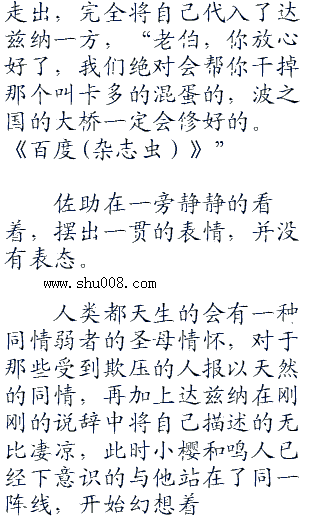 走出，完全将自己代入了达
兹纳一方，“老伯，你放心
好了，我们绝对会帮你干掉
那个叫卡多的混蛋的，波之
国的大桥一定会修好的。
《百度(杂志虫）》”
佐助在一旁静静的看
着，摆出一贯的表情，并没
有表态。
www.shu008.com
人类都天生的会有一种
同情弱者的圣母情怀，对于
那些受到欺压的人报以天然
的同情，再加上达兹纳在刚
刚的说辞中将自己描述的无
比凄凉，此时小樱和鸣人已
经下意识的与他站在了同一
阵线，开始幻想着